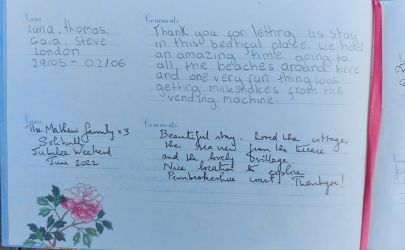 Name
Luna, thomas,
Gaia, Steve
London
29/05 - 02/06
Comments
Thank you for letting us stay
in this beatical place. we had
an amazing time going to
all the beaches around here
and one very fun thing was
getting milkshakes from the
vending machine.
Name
The Mathew family x3
Solihull
Jubilee Weekend
June 2022
Comments
Beautiful stay. Loved the cottage,
the sea view from the terrace
and the lovely village.
Nice location to explore
Pembrokeshire coast. Thankyou!